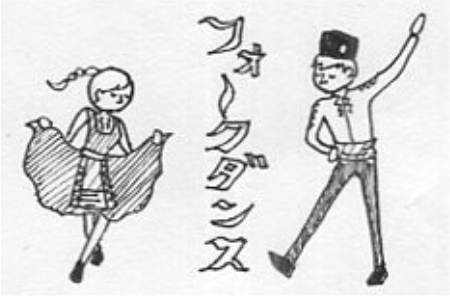 フォークダンス